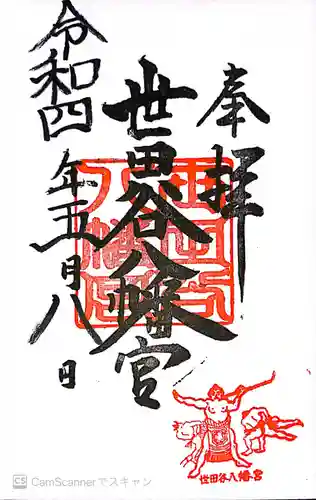 奉拝
世田谷八幡宮
令和四年五月八日
世田谷八幡宮
CS CamScannerでスキャン